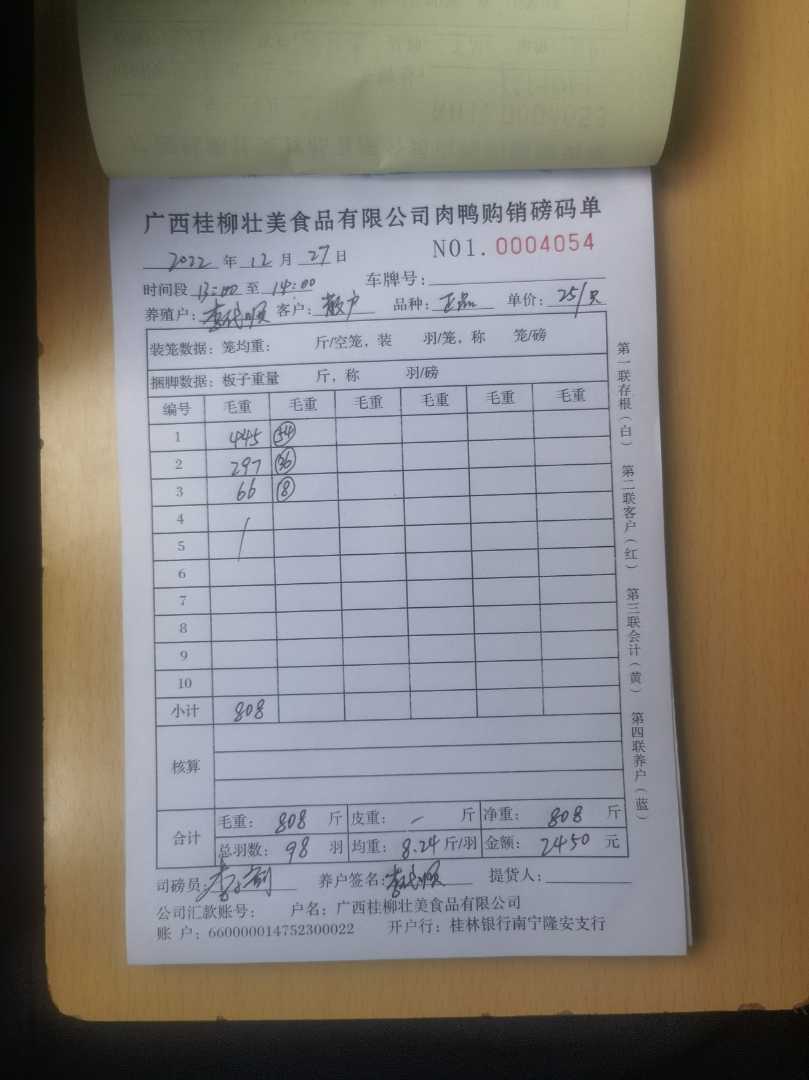 广西桂柳壮美食品有限公司肉鸭购销磅码单
2022 年 12 月 27 日 NO1.0004054
时间段 13:00 至 14:00 车牌号:
养殖户: 客户: 散户 品种: 正品 单价: 25/只
装笼数据: 笼均重: 斤/空笼, 装 羽/笼, 称 笼/磅
捆脚数据: 板子重量 斤, 称 羽/磅
编号 毛重 毛重 毛重 毛重 毛重 毛重
1 445 54
2 297 36
3 66 8
4
5
6
7
8
9
10
小计 808
核算
合计 毛重: 808 斤 皮重: - 斤 净重: 808 斤
总羽数: 98 羽 均重: 8.24 斤/羽 金额: 2450 元
司磅员: 养户签名: 提货人:
公司汇款账号: 户名: 广西桂柳壮美食品有限公司
账 户: 660000014752300022 开户行: 桂林银行南宁隆安支行
第一联存根(白) 第二联客户(红) 第三联会计(黄) 第四联养户(蓝)